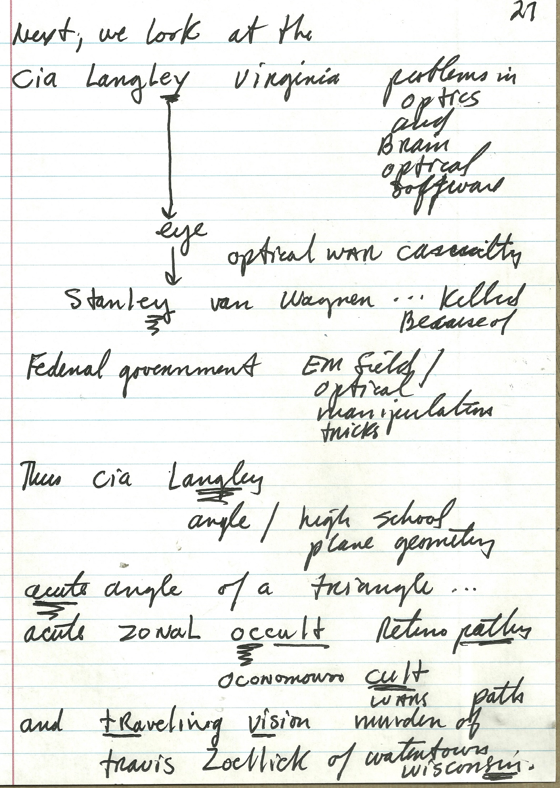 27
Next, we look at the
Cia Langley Virginia problems in
optics
and
Brain
optical
software
eye
optical WAR casualty
Stanley van Wagnen ... Killed
Because of
Federal government EM field /
optical
manipulation
tricks
Thus Cia Langley
angle / high school
plane geometry
acute angle of a triangle ...
acute ZONAL occult Retinopathy
oconomowoc cult
WARS path
and traveling vision murder of
travis Zoellick of watertown
wisconsin.